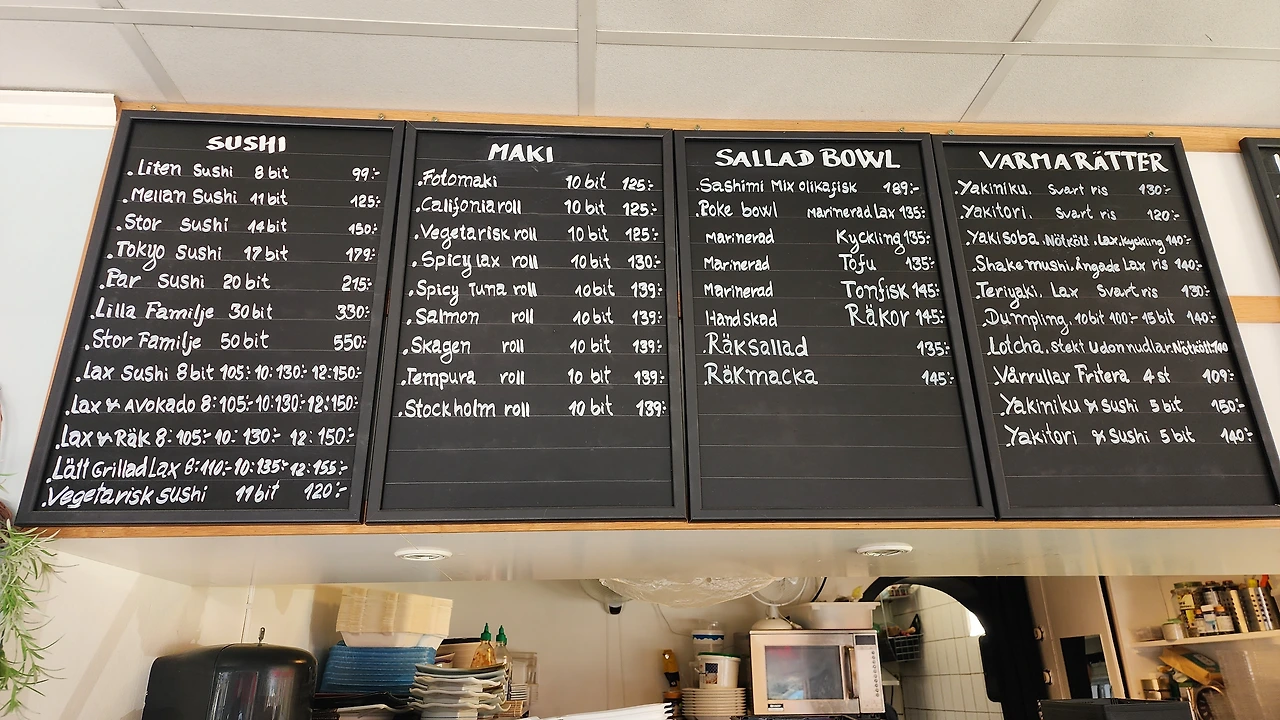 SUSHI
.Liten Sushi 8 bit 99:-
.Mellan Sushi 11 bit 125:-
.Stor Sushi 14 bit 150:-
.Tokyo Sushi 17 bit 179:-
.Par Sushi 20 bit 215:-
.Lilla Familje 30 bit 330:-
.Stor Familje 50 bit 550:-
.Lax Sushi 8 bit 105:- 10:130:- 12:150:-
.Lax & Avokado 8:105:- 10:130:- 12:150:-
.Lax & Räk 8:105:- 10:130:- 12:150:-
.Lätt Grillad Lax 8:110:- 10:135:- 12:155:-
.Vegetarisk Sushi 11 bit 120:-
MAKI
.Fotomaki 10 bit 125:-
.Califonia roll 10 bit 125:-
.Vegetarisk roll 10 bit 125:-
.Spicy lax roll 10 bit 130:-
.Spicy Tuna roll 10 bit 139:-
.Salmon roll 10 bit 139:-
.Skagen roll 10 bit 139:-
.Tempura roll 10 bit 139:-
.Stockholm roll 10 bit 139:-
SALLAD BOWL
.Sashimi Mix olika fisk 189:-
.Poke bowl Marinerad Lax 135:-
Marinerad Kyckling 135:-
Marinerad Tofu 135:-
Marinerad Tonfisk 145:-
Handskad Räkor 145:-
.Räksallad 135:-
.Räkmacka 145:-
VARMA RÄTTER
.Yakiniku. Svart ris 130:-
.Yakitori. Svart ris 120:-
.Yakisoba. Nötkött, Lax, Kyckling 140:-
.Shakemushi. Ångade Lax ris 140:-
.Teriyaki. Lax Svart ris 130:-
.Dumpling. 10 bit 100:- 15 bit 140:-
.Lotcha. stekt Udon nudlar. Nötkött:
.Vårrullar Fritera 4 st 109:-
.Yakiniku & Sushi 5 bit 150:-
.Yakitori & Sushi 5 bit 140:-